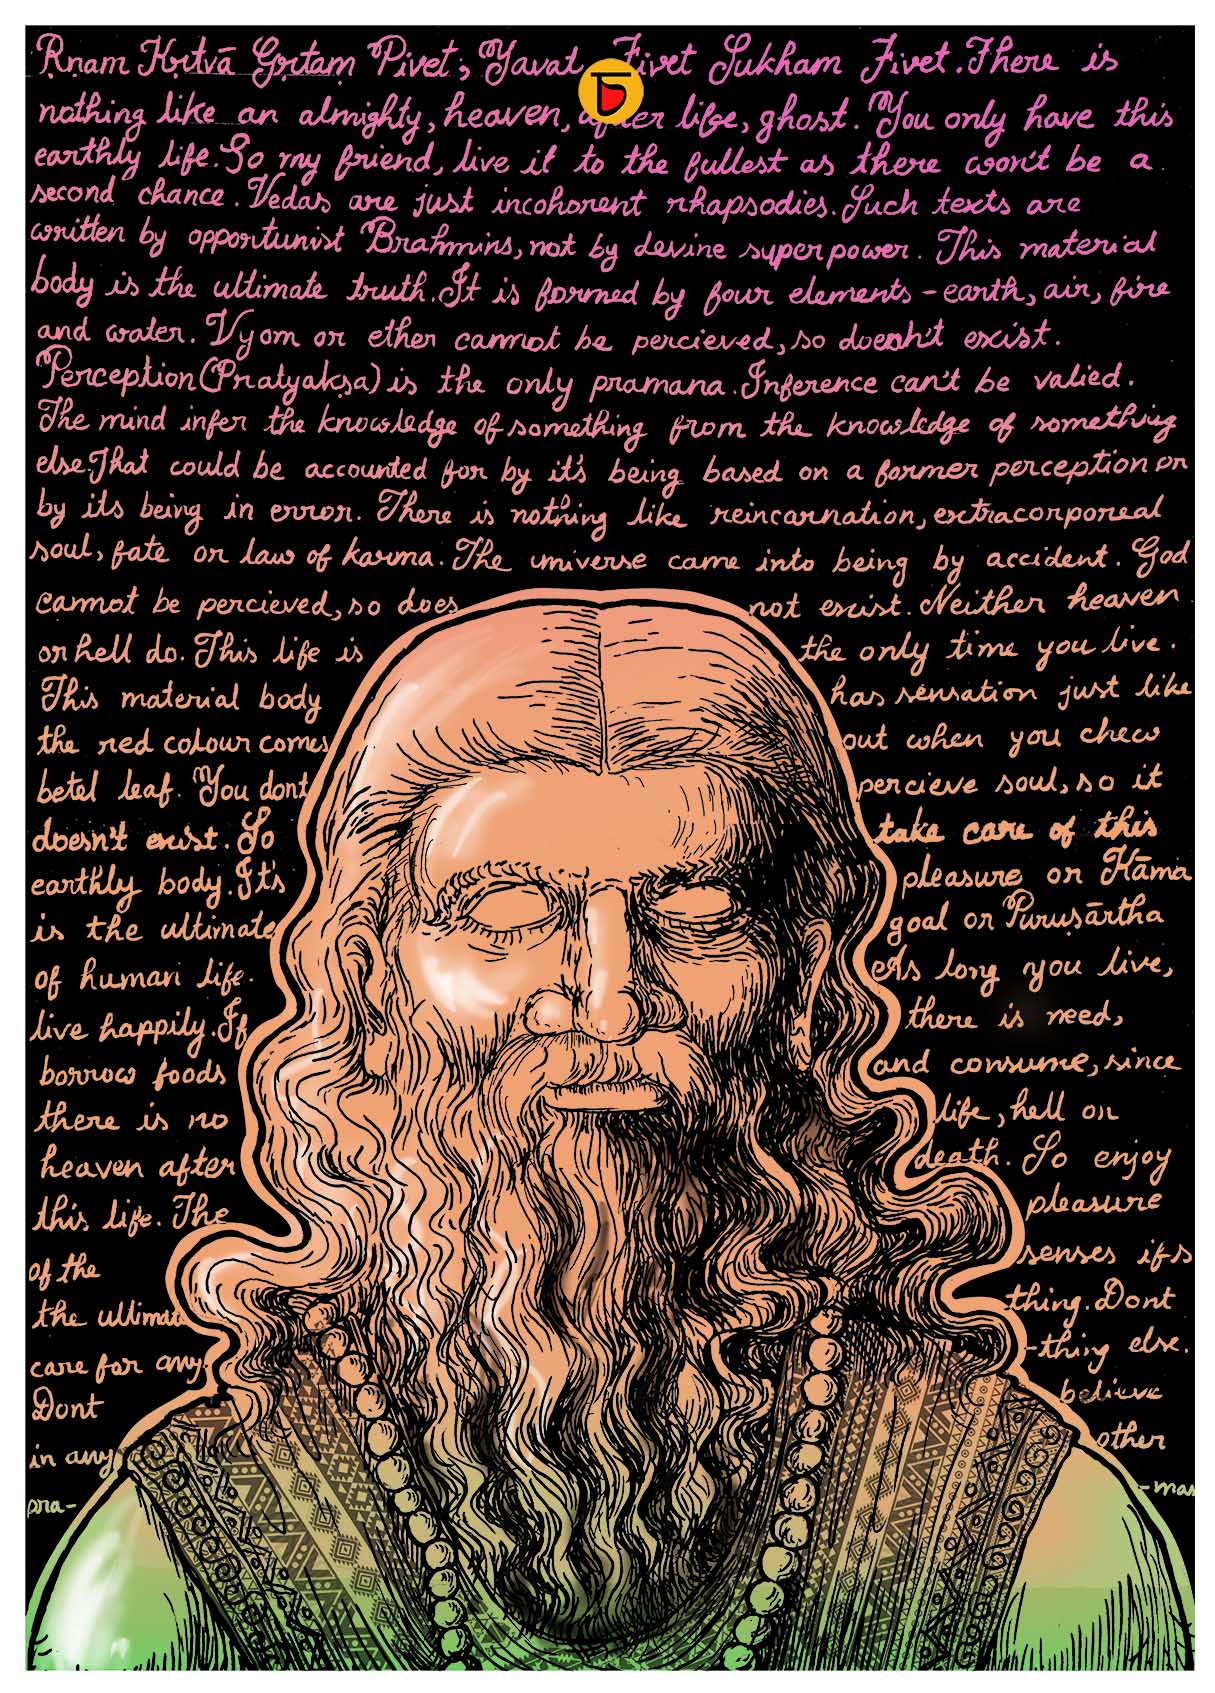 Rnam Kritvā Gritam Pivet, Yavat Jivet Sukham Jivet. There is
nothing like an almighty, heaven, after life, ghost. You only have this
earthly life. So my friend, live it to the fullest as there won't be a
second chance. Vedas are just incohorent rhapsodies. Such texts are
written by opportunist Brahmins, not by devine super power. This material
body is the ultimate truth. It is formed by four elements - earth, air, fire
and water. Vyom or ether cannot be percieved, so doesn't exist.
Perception (Pratyakṣa) is the only pramana. Inference can't be valied.
The mind infer the knowledge of something from the knowledge of something
else. That could be accounted for by it's being based on a former perception or
by its being in error. There is nothing like reincarnation, extracorporeal
soul, fate or law of karma. The universe came into being by accident. God
cannot be percieved, so does not exist. Neither heaven
or hell do. This life is the only time you live.
This material body has sensation just like
the red colour comes out when you chew
betel leaf. You dont percieve soul, so it
doesn't exist. So take care of this
earthly body. It's pleasure or Kāma
is the ultimate goal or Puruṣārtha
of human life. As long you live,
live happily. If there is need,
borrow foods and consume, since
there is no life, hell or
heaven after death. So enjoy
this life. The pleasure
of the senses if s
the ultimate thing. Dont
care for any -thing else.
Dont believe
in any other
pra- -mas